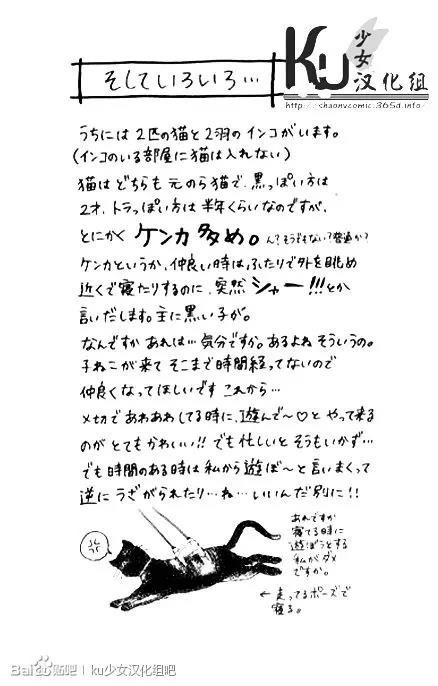 そしていろいろ…
Ku少女汉化组
http://shaonvcomic.365d.info/
うちには2匹の猫と2羽のインコがいます。
(インコのいる部屋に猫は入れない)
猫はどちらも元のら猫で、黒っぽい方は
2才、トラっぽい方は半年くらいなのですが、
とにかくケンカ多め。ん?そうでもない?普通か?
ケンカというか、仲良い時はふたりで外を眺め
近くで寝たりするのに、突然シャー!!!とか
言いだします。主に黒い子が。
なんですかあれは…気分ですか。あるよねそういうの。
子ねこが来てそこまで時間経ってないので
仲良くなってほしいですこれから…
〆切であわあわしてる時に、遊んで〜♡とやって来る
のがとてもかわいい!!でも忙しいとそうもいかず…
でも時間のある時は私から遊ぼ〜と言いまくって
逆にうざがられたり…ね…いいんだ別に!!
あれですか
寝てる時に
遊ぼうとする
私がダメ
ですか。
←走ってるポーズで
寝る。
Bai贴吧|ku少女汉化组吧